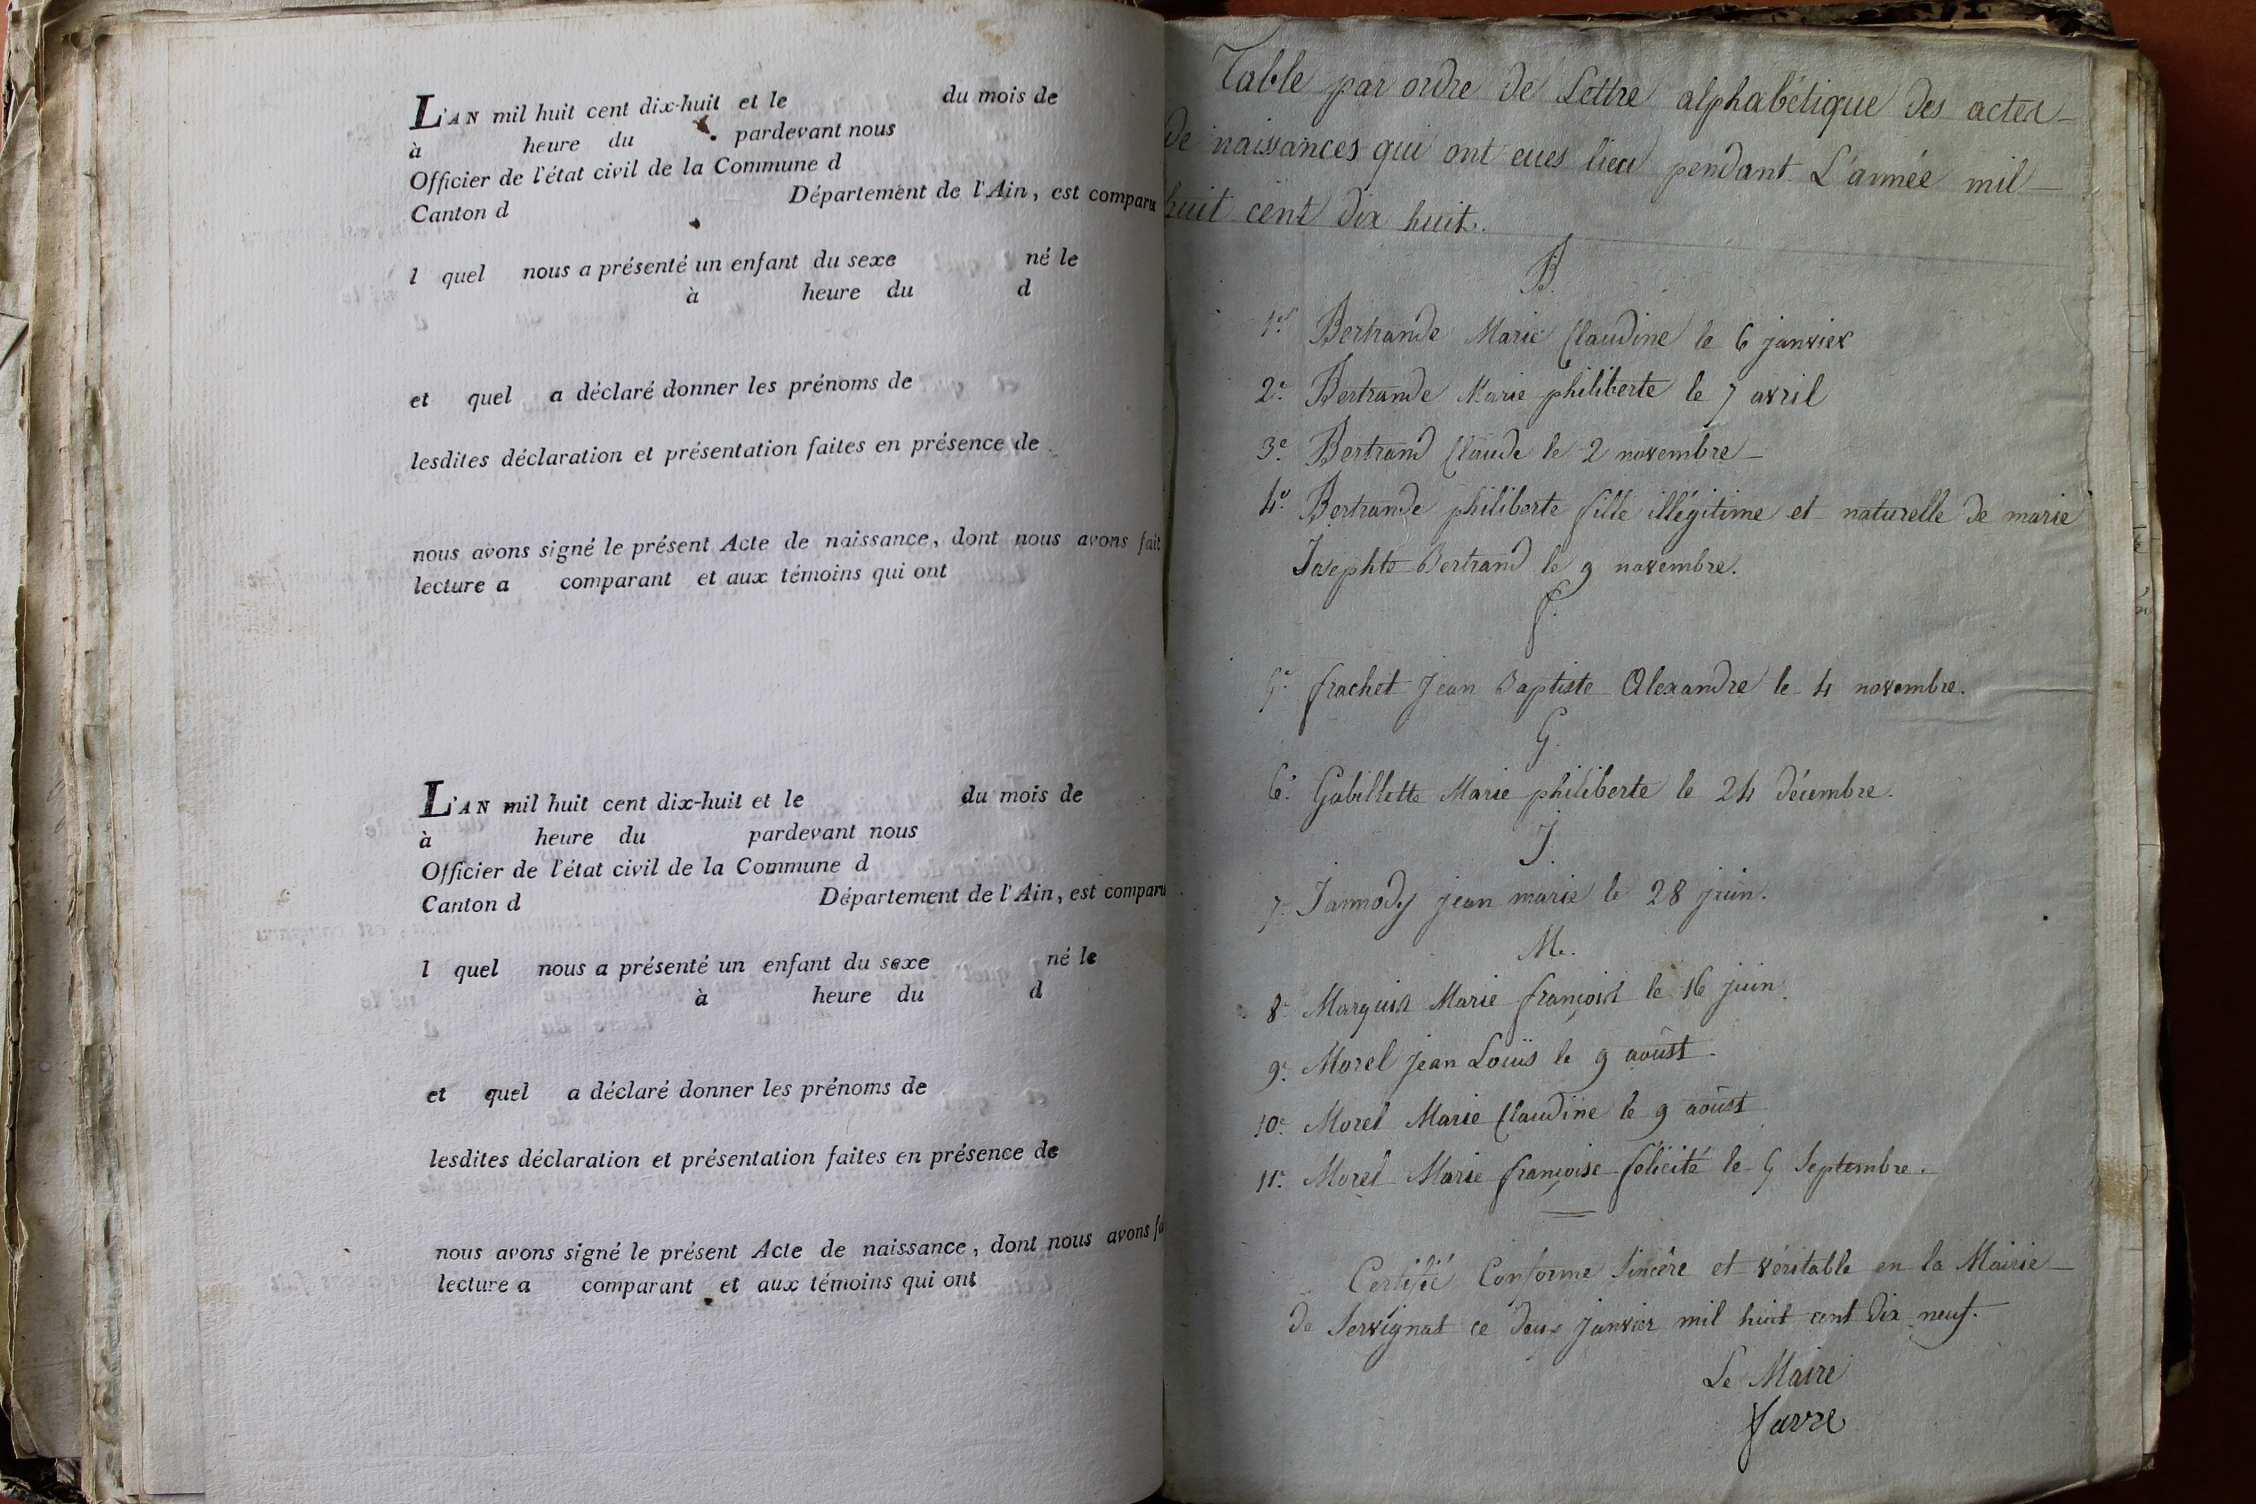 L'AN mil huit cent dix-huit et le du mois de
à heure du pardevant nous
Officier de l'état civil de la Commune d
Canton d Département de l'Ain, est comparu
l quel nous a présenté un enfant du sexe né le
à heure du d
et quel a déclaré donner les prénoms de
lesdites déclaration et présentation faites en présence de
nous avons signé le présent Acte de naissance, dont nous avons fait
lecture a comparant et aux témoins qui ont
L'AN mil huit cent dix-huit et le du mois de
à heure du pardevant nous
Officier de l'état civil de la Commune d
Canton d Département de l'Ain, est comparu
l quel nous a présenté un enfant du sexe né le
à heure du d
et quel a déclaré donner les prénoms de
lesdites déclaration et présentation faites en présence de
nous avons signé le présent Acte de naissance, dont nous avons fa
lecture a comparant et aux témoins qui ont
Table par ordre de Lettre alphabétique des actes
de naissances qui ont eues lieu pendant L'année mil
huit cent dix huit.
B.
1er Bertrande Marie Claudine le 6 janvier
2e Bertrande Marie philiberte le 7 avril
3e Bertrand Claude le 2 novembre
4e Bertrande philiberte fille illégitime et naturelle de marie
Josephte Bertrand le 9 novembre.
f.
5e frachet Jean Baptiste Alexandre le 4 novembre.
G.
6e Gabillette Marie philiberte le 24 décembre.
J.
7e Jannody jean marie le 28 juin.
M.
8e Marquis Marie françois le 16 juin.
9e Morel jean Louis le 9 aoûst.
10e Morel Marie Claudine le 9 aoûst
11e Morel Marie françoise félicité le 5 Septembre.
Certifié Conforme Sincère et véritable en la Mairie
de Servignat ce deux janvier mil huit cent dix neuf.
Le Maire
favre